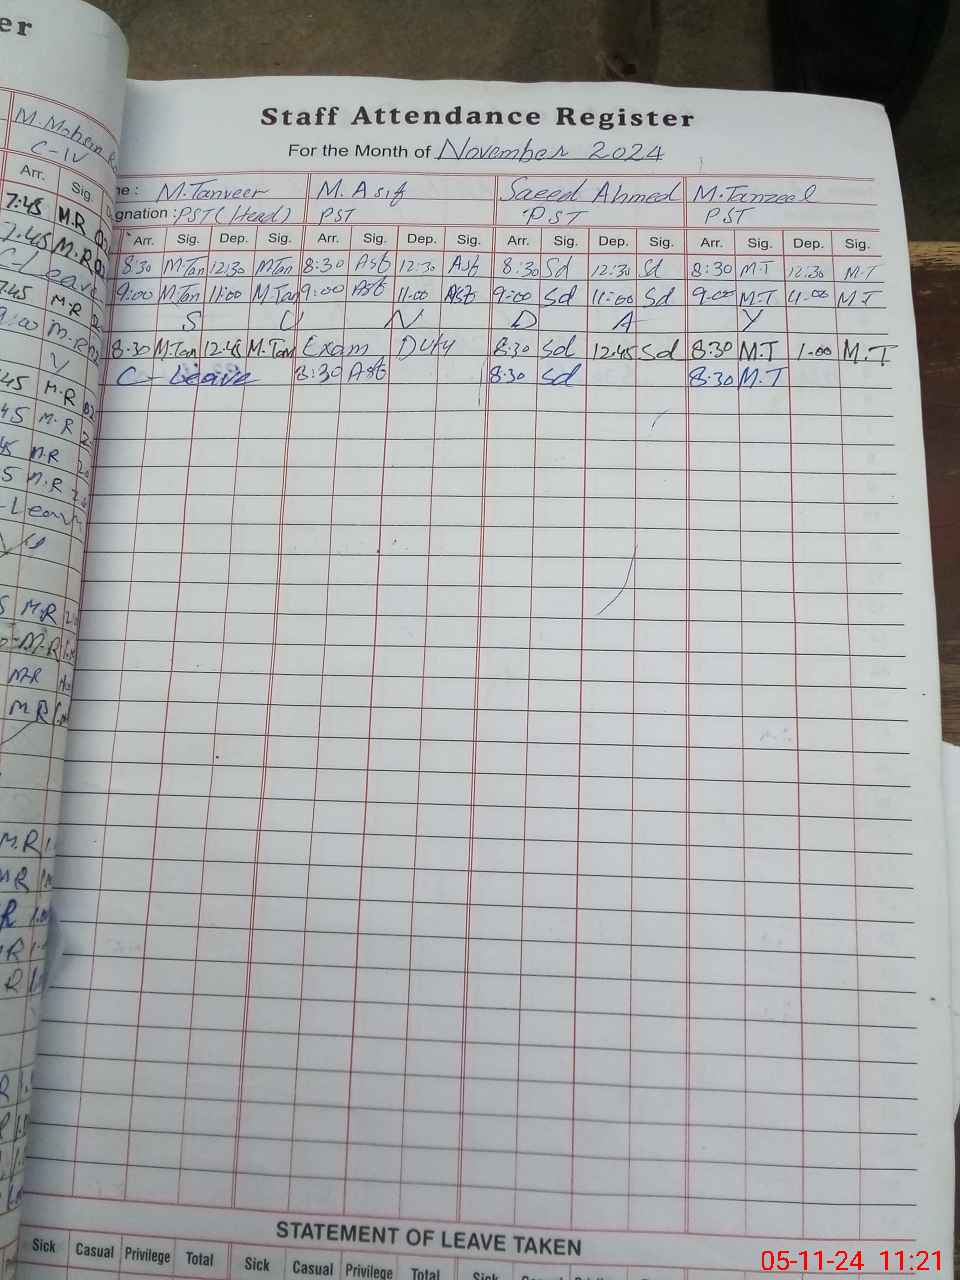 er
Staff Attendance Register
For the Month of November 2024
M. Mohsin
C-IV
me : M.Tanveer M. Asif Saeed Ahmed M.Tanzeel
gnation : PST (Head) PST PST PST
Arr. Sig. Arr. Sig. Dep. Sig. Arr. Sig. Dep. Sig. Arr. Sig. Dep. Sig. Arr. Sig. Dep. Sig.
7:45 M.R 8:30 M.Tan 12:30 M.Tan 8:30 Asf 12:30 Asf 8:30 Sd 12:30 Sd 8:30 M.T 12:30 M.T
7.45 M.R 9:00 M.Tan 11:00 M.Tan 9:00 Asf 11.00 Asf 9:00 Sd 11:00 Sd 9.00 M.T 11.00 M.T
C Leave S U N D A Y
7.45 M.R 8:30 M.Tan 12:45 M.Tan Exam Duty 8:30 Sd 12.45 Sd 8:30 M.T 1.00 M.T
9:00 M.R C- Leave 8:30 Asf 8:30 Sd 8:30 M.T
45 M.R
45 M.R
45 M.R
5 M.R
-Leave
5 M.R
M.R
M.R
M.R
M.R
M.R
R
R
R
R
R
STATEMENT OF LEAVE TAKEN
Sick Casual Privilege Total Sick Casual Privilege Total Sick Casual
05-11-24 11:21